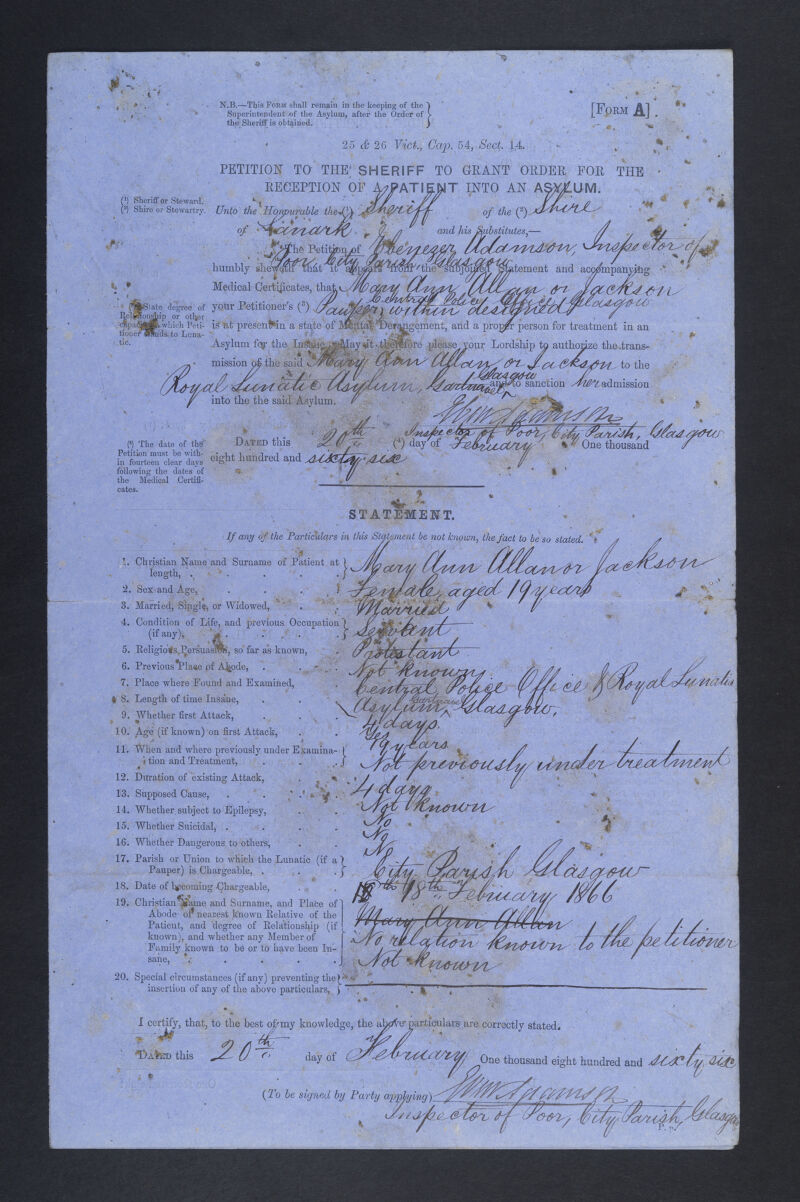 N.B.—This Form shall remain in the keeping of the
Superintendent of the Asylum, after the Order of
the Sheriff is obtained.
[Form A].
25 & 26 Vict., Cap. 54, Sect. 14.
PETITION TO THE SHERIFF TO GRANT ORDER FOR THE
RECEPTION OF A PATIENT INTO AN ASYLUM.
(1) Sheriff or Steward.
(2) Shire or Stewartry.
Unto the Honourable the (1) Sheriff of the (2) Shire
of Lanark and his Substitutes,—
The Petition of Ebenezer Adamson, Inspector of
Poor, City Parish, Glasgow
humbly sheweth that it appears from the subjoined Statement and accompanying
Medical Certificates, that Mary Ann Allan or Jackson
Central Police Office Glasgow
(3) State degree of
Relationship or other
capacity in which Peti-
tioner stands to Luna-
tic.
your Petitioner's (3) Pauper, within designed
is at present in a state of Mental Derangement, and a proper person for treatment in an
Asylum for the Insane. May it therefore please your Lordship to authorize the trans-
mission of the said Mary Ann Allan or Jackson to the
Royal Lunatic Asylum, Gartnavel Glasgow and to sanction her admission
into the the said Asylum.
Ebenr Adamson
Inspector of Poor, City Parish, Glasgow
(4) The date of the
Petition must be with-
in fourteen clear days
following the dates of
the Medical Certifi-
cates.
Dated this 20th (4) day of February One thousand
eight hundred and sixty six
STATEMENT.
If any of the Particulars in this Statement be not known, the fact to be so stated.
1. Christian Name and Surname of Patient at
length, Mary Ann Allan or Jackson
2. Sex and Age, Female, aged 19 years
3. Married, Single, or Widowed, Married
4. Condition of Life, and previous Occupation
(if any), Servant
5. Religious Persuasion, so far as known, Protestant
6. Previous Place of Abode, Not known
7. Place where Found and Examined, Central Police Office & Royal Lunatic
Asylum, Gartnavel Glasgow.
8. Length of time Insane, 4 days
9. Whether first Attack, Yes
10. Age (if known) on first Attack, 19 years
11. When and where previously under Examina-
tion and Treatment, Not previously under treatment
12. Duration of existing Attack, 4 days
13. Supposed Cause, Not known
14. Whether subject to Epilepsy, No
15. Whether Suicidal, No
16. Whether Dangerous to others, No
17. Parish or Union to which the Lunatic (if a
Pauper) is Chargeable, City Parish Glasgow
18. Date of becoming Chargeable, 18th February 1866
19. Christian Name and Surname, and Place of
Abode of nearest known Relative of the
Patient, and degree of Relationship (if
known), and whether any Member of
Family known to be or to have been In-
sane,
Mary Ann Allan
No relation known to the petitioner
Not known
20. Special circumstances (if any) preventing the
insertion of any of the above particulars,
I certify, that, to the best of my knowledge, the above particulars are correctly stated.
Dated this 20th day of February One thousand eight hundred and sixty six
(To be signed by Party applying) Ebenr Adamson
Inspector of Poor, City Parish, Glasgow